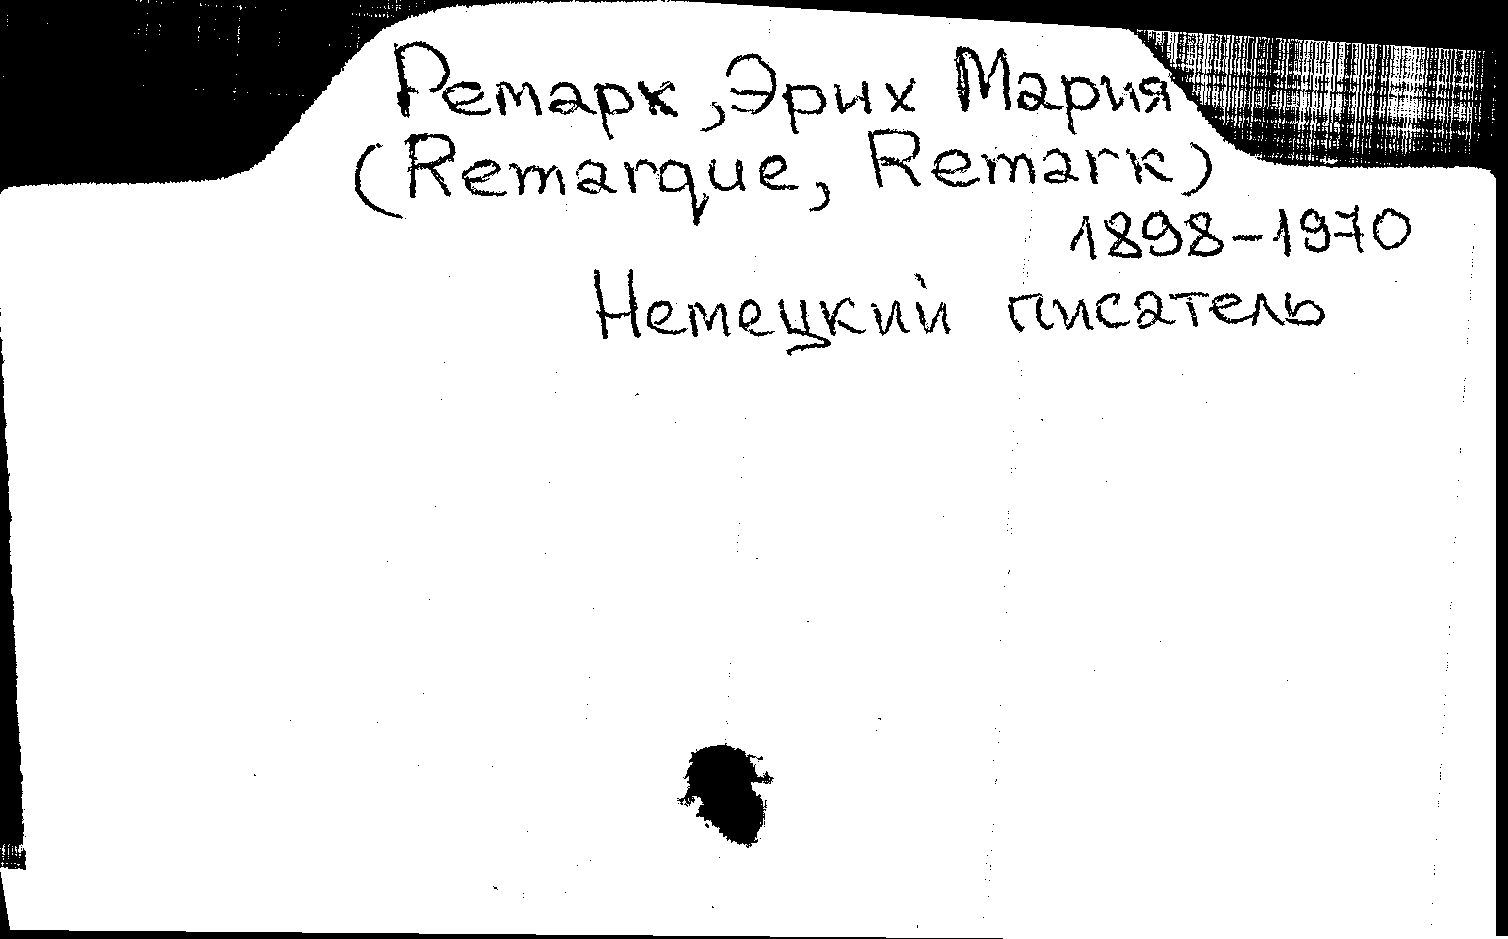 Ремарк, Эрих Мария
(Remarque, Remark)
1898-1970
Немецкий писатель